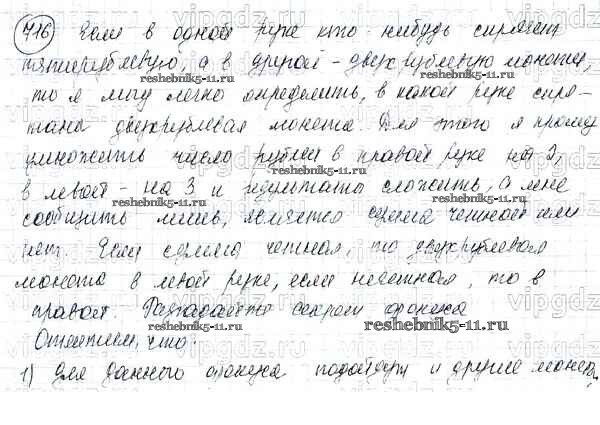 716 Если в одной руке кто-нибудь спрячет
пятирублевую, а в другой - двухрублевую монеты,
то я могу легко определить, в какой руке спря-
тана двухрублевая монета. Для этого я прошу
умножить число рублей в правой руке на 2,
в левой - на 3 и результаты сложить, а мне
сообщить лишь, является сумма четной или
нет. Если сумма четная, то двухрублевая
монета в левой руке, если нечетная, то в
правой. Разгадайте секрет фокуса
Отметим, что:
1) Для данного фокуса подойдут и другие монеты
reshebnik5-11.ru
reshebnik5-11.ru
reshebnik5-11.ru
reshebnik5-11.ru
reshebnik5-11.ru
vipgdz.ru